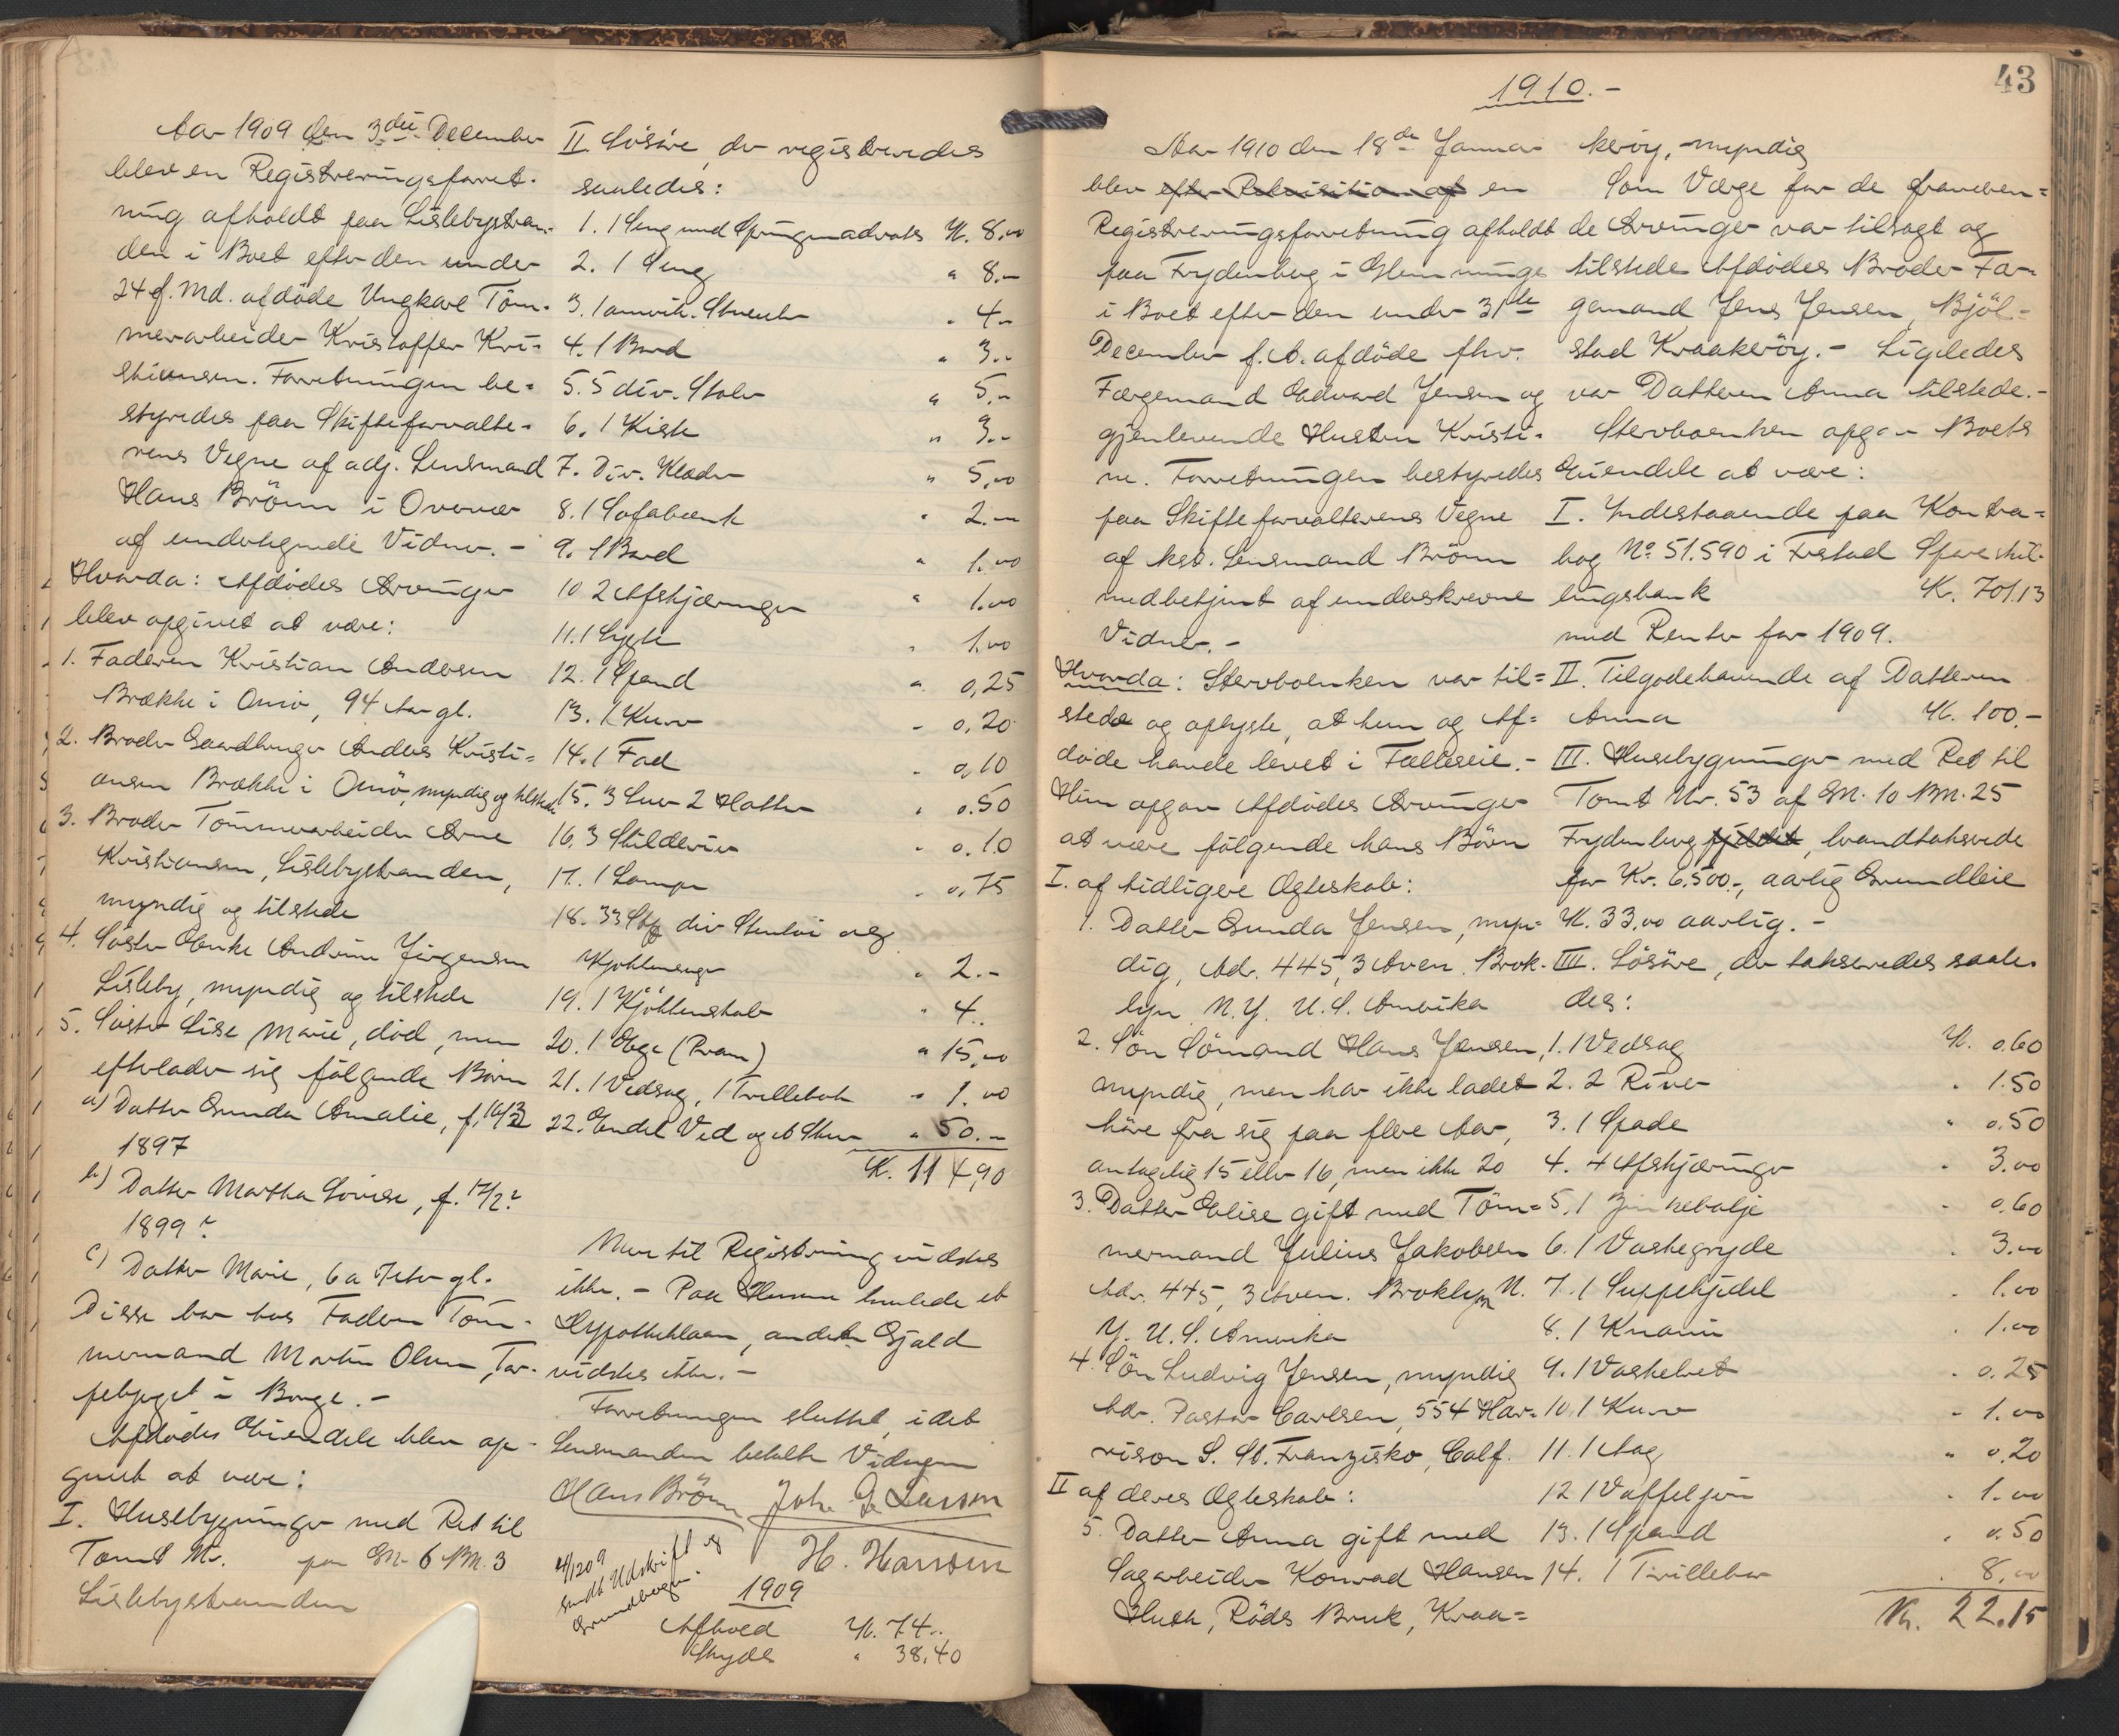 Aar 1909 den 3die December
blev en Registreringsforret-
ning afholdt paa Lislebystran-
den i Boet efter den under
24 f. Md. afdöde Ungkarl Töm-
merarbeider Kristoffer Kri-
stiansen. Forretningen be-
styredes paa Skifteforvalte-
rens Vegne af adj. Lensmand
Hans Brönn i Overvær
af undertegnede Vidner. -
Hvorda: Afdödes Arvinger
blev opgivet at være:
1. Faderen Kristian Andersen
Brække i Onsö, 94 Aar gl.
2. Broder Gaardbruger Anders Kristi-
ansen Brække i Onsö, myndig og tilstede
3. Broder Tömmerarbeider Arne
Kristiansen, Lislebystranden,
myndig og tilstede
4. Söster Enke Andrine Jörgensen
Lisleby, myndig og tilstede
5. Söster Lise Marie, död, men
efterlader sig fölgende Börn
a) Datter Gunda Amalie, f. 16/3
1897
b) Datter Martha Lovise, f. 17/2?
1899?
c) Datter Marie, 6 a 7 Aar gl.
Disse bor hos Faderen Töm-
mermand Martin Olsen, Tor-
pebjerget i Borge. -
Afdödes Eiendele blev op-
givet at være:
I. Husebygninger med Ret til
Tomt Nr. paa Gn. 6 Bn. 3
Lislebystranden
II. Lösöre, der registreredes
saaledes:
1. 1 Seng med Springmadrats Kr. 8.00
2. 1 Seng " 8.-
3. 1 amrik. Stueuhr " 4.-
4. 1 Bord " 3.-
5. 5 div. Stoler " 5.-
6. 1 Kiste " 3.-
7. Div. Klæder " 5,00
8. 1 Sofabænk " 2.-
9. 1 Bord " 1.00
10 2 Afskjæringer " 1.00
11. 1 Lygte " 1.00
12. 1 Spand " 0,25
13. 1 Kurv " 0,20
14. 1 Fad " 0,10
15. 3 Luer 2 Hatter " 0.50
16. 3 Skilderier " 0.10
17. 1 Lampe " 0.75
18. 33 Stk div Stentöi og
Kjökkensager " 2.-
19. 1 Kjökkenskab " 4.-
20. 1 Ege (Pram) " 15,00
21. 1 Vedsag, 1 Trillebör " 1.00
22. Endel Ved og et Skur " 50.-
Kr. 114,90
Mere til Registrering vidstes
ikke. - Paa Husene hvilede et
Hypotheklaan, anden Gjæld
vidstes ikke. -
Forretningen sluttet, idet
Lensmanden betalte Vidnerne
Hans Brönn Joh. G. Larsen
H. Hansen
4/12 09
sendt Udskrift af
Grundbogen.
1909
Afhved Kr. 74..
Skyds " 38.40
43
1910. -
Aar 1910 den 18de Januar
blev efter Rekvisition af en
Registreringsforretning afholdt
paa Frydenberg i Glemminge
i Boet efter den under 31te
December f. A. afdöde fhv.
Færgemand Edvard Jensen og
gjenlevende Hustru Kristi-
ne. Forretningen bestyredes
paa Skifteforvalterens Vegne
af kst. Lensmand Brönn
medbetjent af underskrevne
Vidner. -
Hvorda: Stervboenken var til-
stede og oplyste, at hun og Af-
döde havde levet i Fælleseie. -
Hun opgav Afdödes Arvinger
at være fölgende hans Börn
I. af tidligere Ægteskab:
1. Datter Gunda Jensen, myn-
dig, Adr. 445, 3 Aven. Brok-
lyn N.Y. U.S. Amerika
2. Sön Sömand Hans Jensen,
myndig, men har ikke ladet
höre fra sig paa flere Aar,
antagelig 15 eller 16, men ikke 20
3. Datter Elise gift med Töm-
mermand Julius Jakobsen
Adr. 445, 3 Aven. Broklyn N.
Y. U.S. Amerika
4. Sön Ludvig Jensen, myndig
Adr. Pastor Carlsen, 554 Har-
rison S. St. Franzisko, Calf.
II af deres Ægteskab:
5. Datter Anna gift med
Sagarbeider Konrad Hansen
Huth, Röds Bruk, Kraa-
keröy, myndig
Som Værge for de fraværen-
de Arvinger var tilsagt og
tilstede Afdödes Broder Fær-
gemand Jens Jensen, Bjöl-
stad Kraakeröy. - Ligeledes
var Datteren Anna tilstede. -
Stervboenken opgav Boets
Eiendele at være:
I. Indestaaende paa Kontra-
bog No. 51.590 i Frstad Spareskil-
lingsbank Kr. 701.13
med Renter for 1909.
II. Tilgodehavende af Datteren
Anna Kr. 100.-
III. Husebygninger med Ret til
Tomt Nr. 53 af Gn. 10 Bn. 25
Frydenberg fjeldet, brandtakserede
for Kr. 6.500.-, aarlig Grundleie
Kr. 33.00 aarlig. -
III. Lösöre, der takseredes saale-
des:
1. 1 Vedsag Kr. 0.60
2. 2 River " 1.50
3. 1 Spade " 0.50
4. 4 Afskjæringer " 3.00
5. 1 Zinkebalje " 0.60
6. 1 Vaskegryde " 3.00
7. 1 Suppekjedel " 1.00
8. 1 Kvarn " 1.00
9. 1 Vaskebret " 0.25
10. 1 Kurv " 1.00
11. 1 Aag " 0.20
12 1 Vaffeljern " 1.00
13. 1 Spand " 0.50
14. 1 Trillebør " 8.00
Kr. 22.15